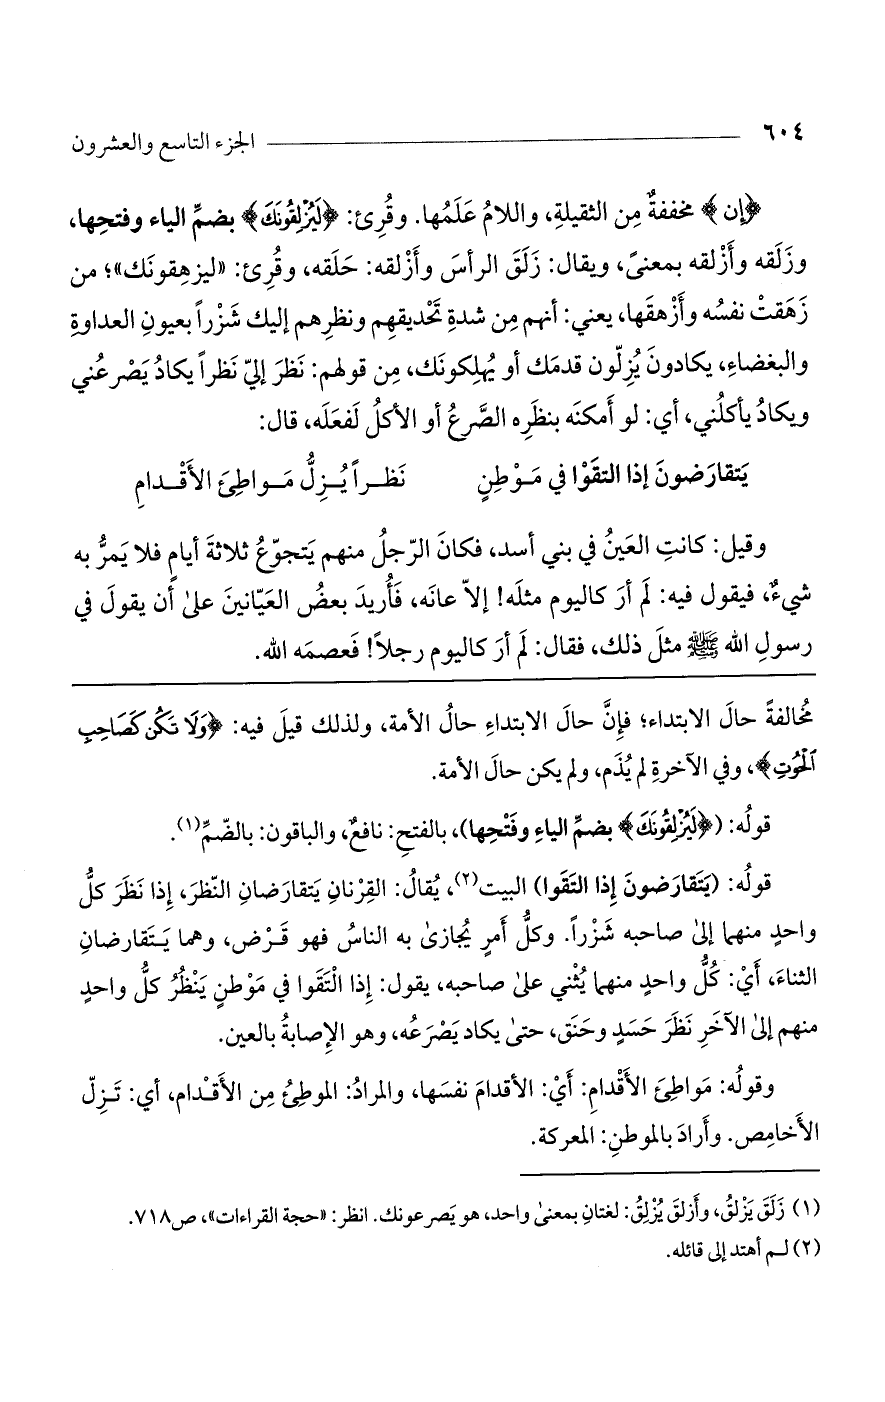 ٦٠٤ الجزء التاسع والعشرون
﴿إن﴾ مخففةٌ مِن الثقيلةِ، واللامُ عَلَمُها. وقُرِئ: ﴿لَيُزْلِقُونَكَ﴾ بضمِّ الياء وفتحِها،
وزَلَقه وأَزْلقه بمعنىً، ويقال: زَلَقَ الرأسَ وأَزْلقه: حَلَقه، وقُرِئ: «ليزهِقونَك»؛ من
زَهَقتْ نفسُه وأَزْهقَها، يعني: أنهم مِن شدةِ تَحْديقِهم ونظرِهم إليك شَزْراً بعيونِ العداوةِ
والبغضاءِ، يكادونَ يُزِلّون قدمَك أو يُهلِكونَك، مِن قولهم: نَظَر إليّ نَظراً يكادُ يَصْرعُني
ويكادُ يأكلُني، أي: لو أَمكنَه بنظَرِه الصَّرعُ أو الأكلُ لَفعَلَه، قال:
يَتقارَضونَ إذا التقَوْا في مَوْطِنٍ نَظراً يُزِلُّ مَواطِئَ الأَقْدامِ
وقيل: كانتِ العَينُ في بني أسد، فكانَ الرّجلُ منهم يَتجوّعُ ثلاثةَ أيامٍ فلا يَمرُّ به
شيءٌ، فيقول فيه: لَم أرَ كاليوم مثلَه! إلاّ عانَه، فَأُريدَ بعضُ العَيّانينَ علىٰ أن يقولَ في
رسولِ الله ﷺ مثلَ ذلك، فقال: لَم أرَ كاليوم رجلاً! فَعصمَه الله.
مُخالفةً حالَ الابتداء؛ فإنَّ حالَ الابتداءِ حالُ الأمة، ولذلك قيلَ فيه: ﴿وَلَا تَكُن كَصَاحِبِ
ٱلْحُوتِ﴾، وفي الآخرةِ لم يُذَم، ولم يكن حالَ الأمة.
قولُه: (﴿لَيُزْلِقُونَكَ﴾ بضمِّ الياءِ وفَتْحِها)، بالفتحِ: نافعٌ، والباقون: بالضّمِّ(١).
قولُه: (يَتَقارَضونَ إِذا التَقَوا) البيت(٢)، يُقالُ: القِرْنانِ يَتقارَضانِ النّظرَ، إذا نَظَرَ كلُّ
واحدٍ منهما إلىٰ صاحبه شَزْراً. وكلُّ أَمرٍ يُجازىٰ به الناسُ فهو قَرْض، وهما يَتَقارضانِ
الثناءَ، أَيْ: كُلُّ واحدٍ منهما يُثْني علىٰ صاحبه، يقول: إِذا الْتَقَوا في مَوْطنٍ يَنْظُرُ كلُّ واحدٍ
منهم إلىٰ الآخَرِ نَظَرَ حَسَدٍ وحَنَق، حتىٰ يكاد يَصْرَعُه، وهو الإصابةُ بالعين.
وقولُه: مَواطِئَ الأَقْدامِ: أَيْ: الأقدامَ نفسَها، والمرادُ: الموطِئُ مِن الأَقْدام، أي: تَزِلّ
الأَخامِص. وأَرادَ بالموطنِ: المعركة.
(١) زَلَقَ يَزْلقُ، وأَزلقَ يُزْلِقُ: لغتانِ بمعنىٰ واحد، هو يَصرعونك. انظر: «حجة القراءات»، ص٧١٨.
(٢) لم أهتد إلى قائله.